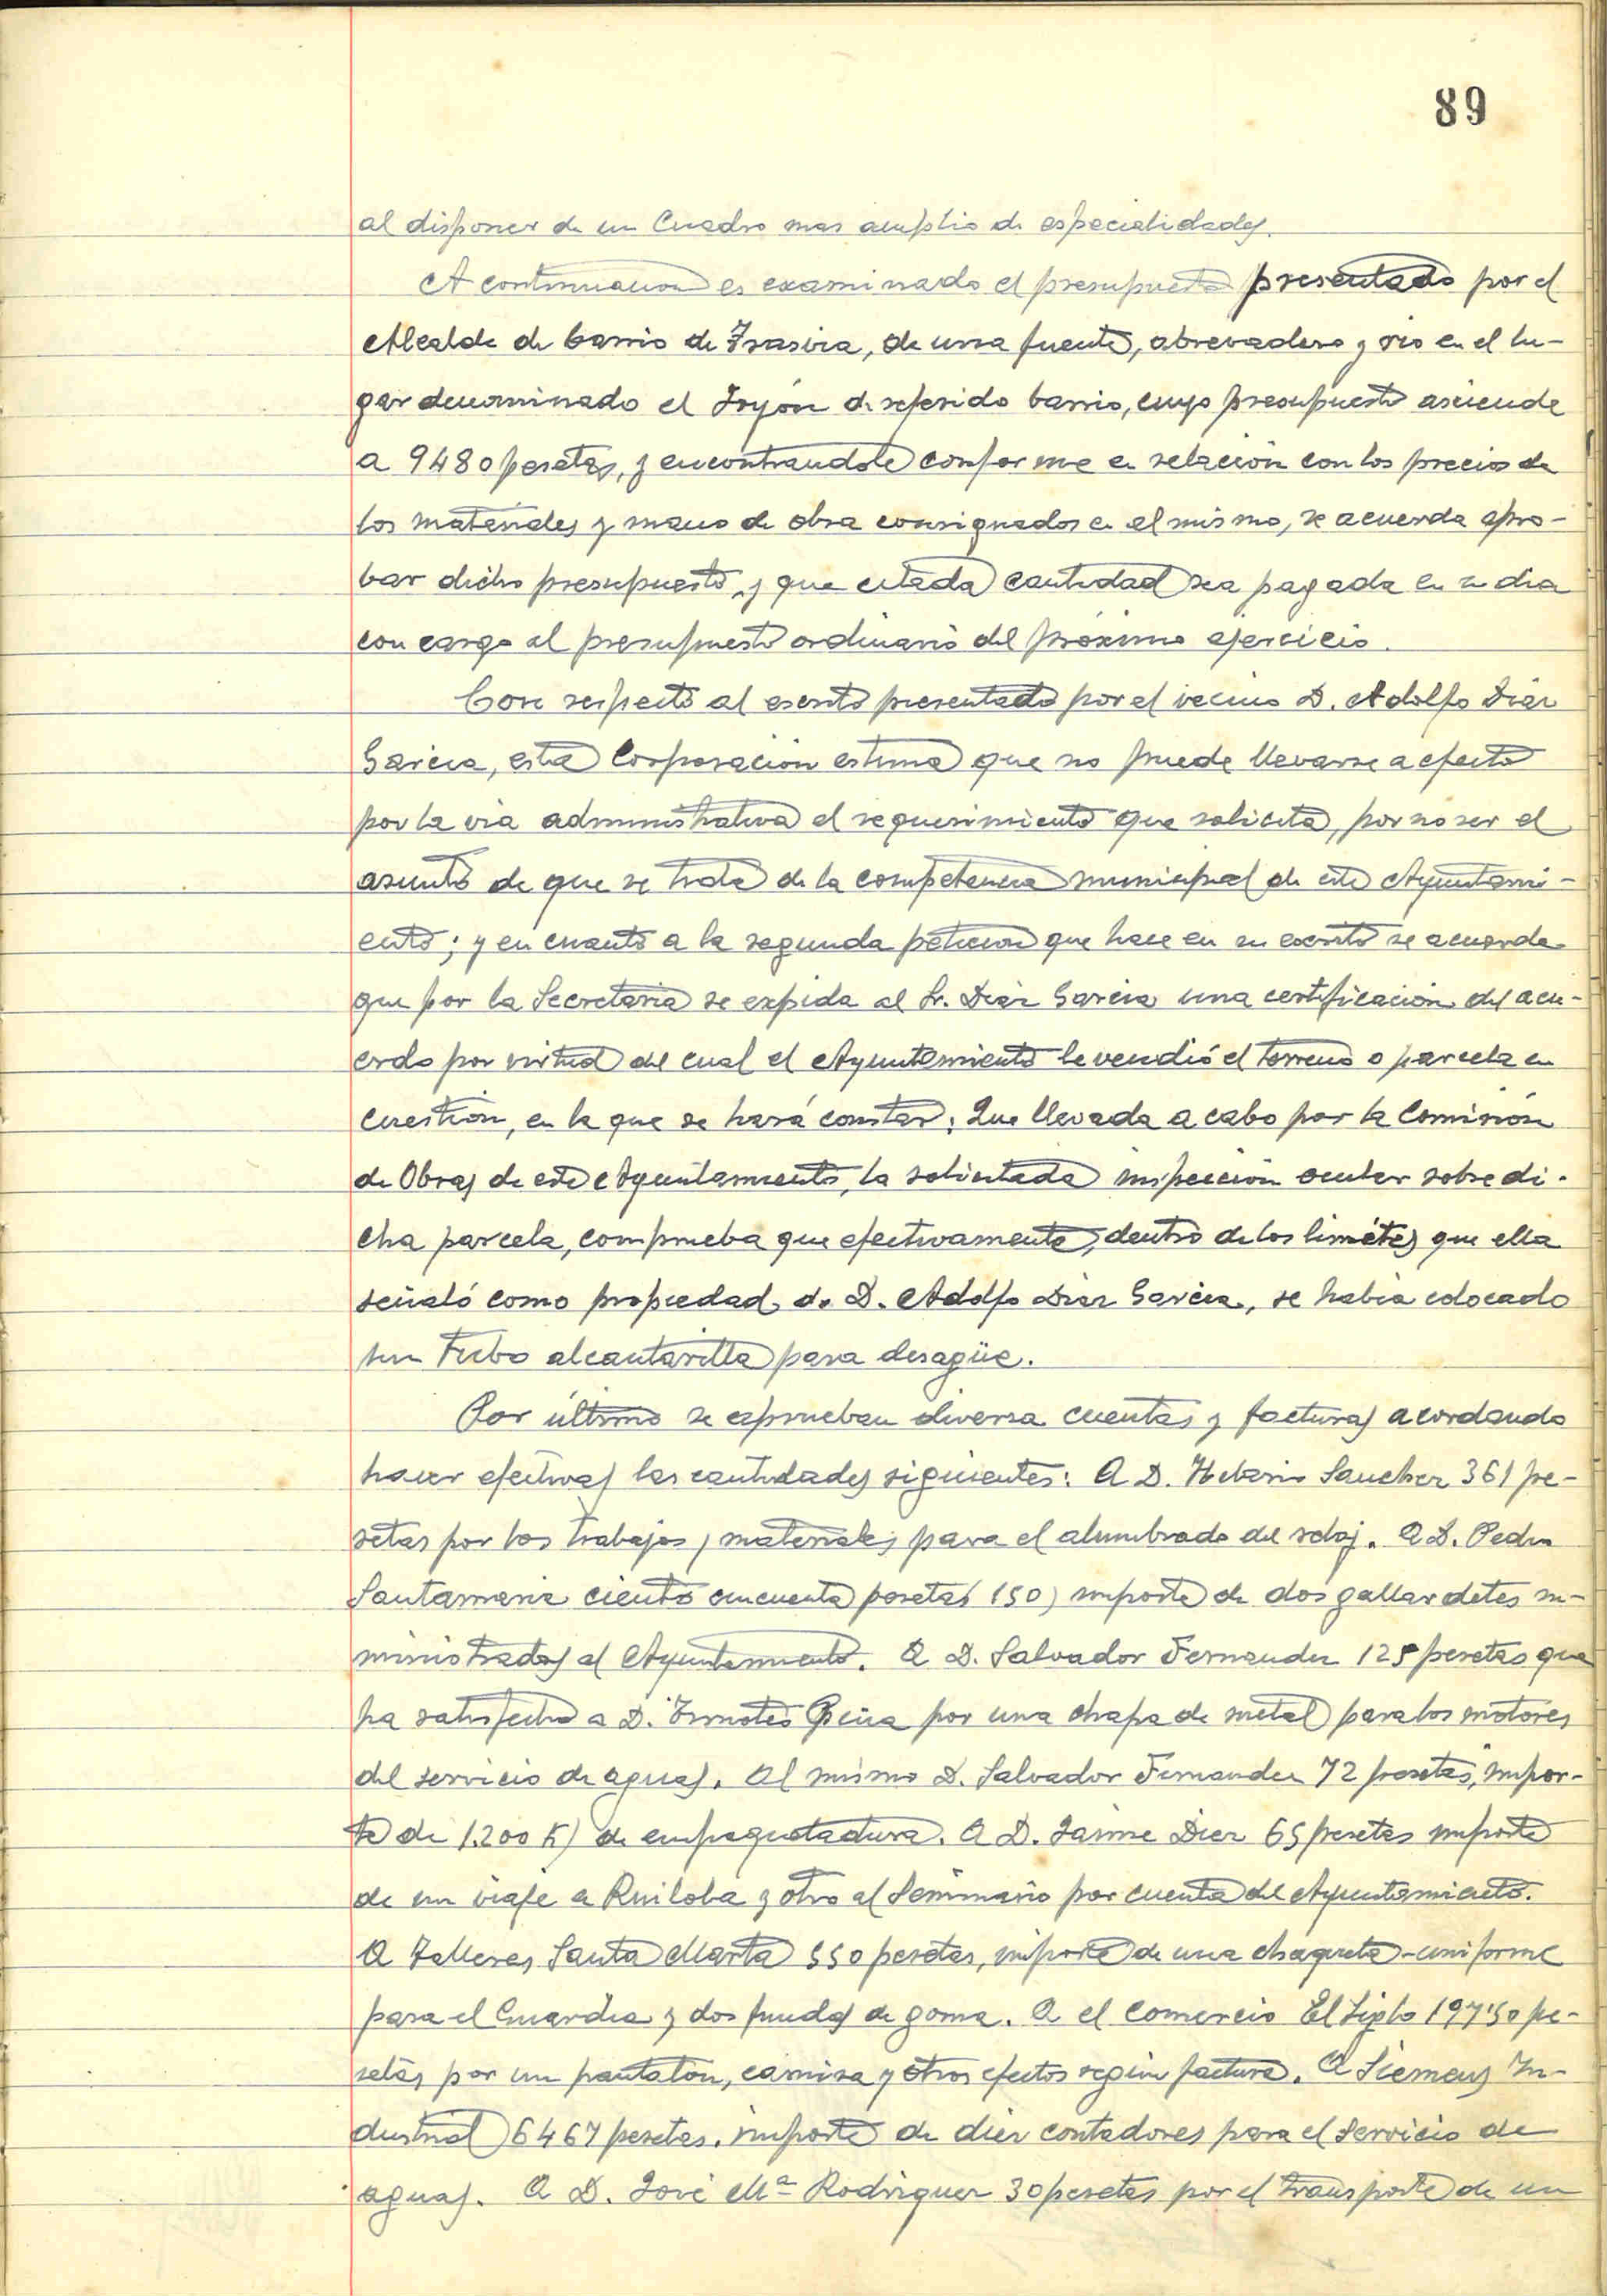 89
al disponer de un Cuadro mas amplio de especialidades.
A continuacion es examinado el presupuesto presentado por el
Alcalde de barrio de Trasvia, de una fuente, abrevadero y rio en el lu-
gar denominado el Joyón de referido barrio, cuyo presupuesto asciende
a 9480 pesetas, y encontrandole conforme en relación con los precios de
los materiales y mano de obra consignados en el mismo, se acuerda apro-
bar dicho presupuesto, y que citada cantidad sea pagada en su dia
con cargo al presupuesto ordinario del próximo ejercicio.
Con respecto al escrito presentado por el vecino D. Adolfo Diaz
Garcia, esta Corporación estima que no puede llevarse a efecto
por la via administrativa el requerimiento que solicita, por no ser el
asunto de que se trata de la competencia municipal de este Ayuntami-
ento; y en cuanto a la segunda peticion que hace en su escrito se acuerda
que por la Secretaria se expida al Sr. Diaz Garcia una certificación del acu-
erdo por virtud del cual el Ayuntamiento le vendió el terreno o parcela en
cuestión, en la que se hará constar: Que llevada a cabo por la Comisión
de Obras de este Ayuntamiento, la solicitada inspección ocular sobre di-
cha parcela, comprueba que efectivamente, dentro de los limites que ella
señaló como propiedad de D. Adolfo Diaz Garcia, se habia colocado
un tubo alcantarilla para desagüe.
Por último se aprueban diversa cuentas y facturas acordando
hacer efectivas las cantidades siguientes: A D. Hilario Sanchez 361 pe-
setas por los trabajos y materiales para el alumbrado del reloj. A D. Pedro
Santamaria ciento cincuenta pesetas (150) importe de dos gallardetes su-
ministrados al Ayuntamiento. A D. Salvador Fernandez 125 pesetas que
ha satisfecho a D. Timoteo Peña por una chapa de metal para los motores
del servicio de aguas. Al mismo D. Salvador Fernandez 72 pesetas, impor-
te de 1.200 K) de empaquetadura. A D. Jaime Diez 65 pesetas importe
de un viaje a Ruiloba y otro al Seminario por cuenta del Ayuntamiento.
A Talleres Santa Marta 550 pesetas, importe de una chaqueta-uniforme
para el Guardia y dos fundas de goma. A el Comercio El Siglo 197'50 pe-
setas por un pantalón, camisa y otros efectos según factura. A Siemens In-
dustrial 6467 pesetas. importe de diez contadores para el servicio de
aguas. A D. José Mª Rodriguez 30 pesetas por el transporte de un